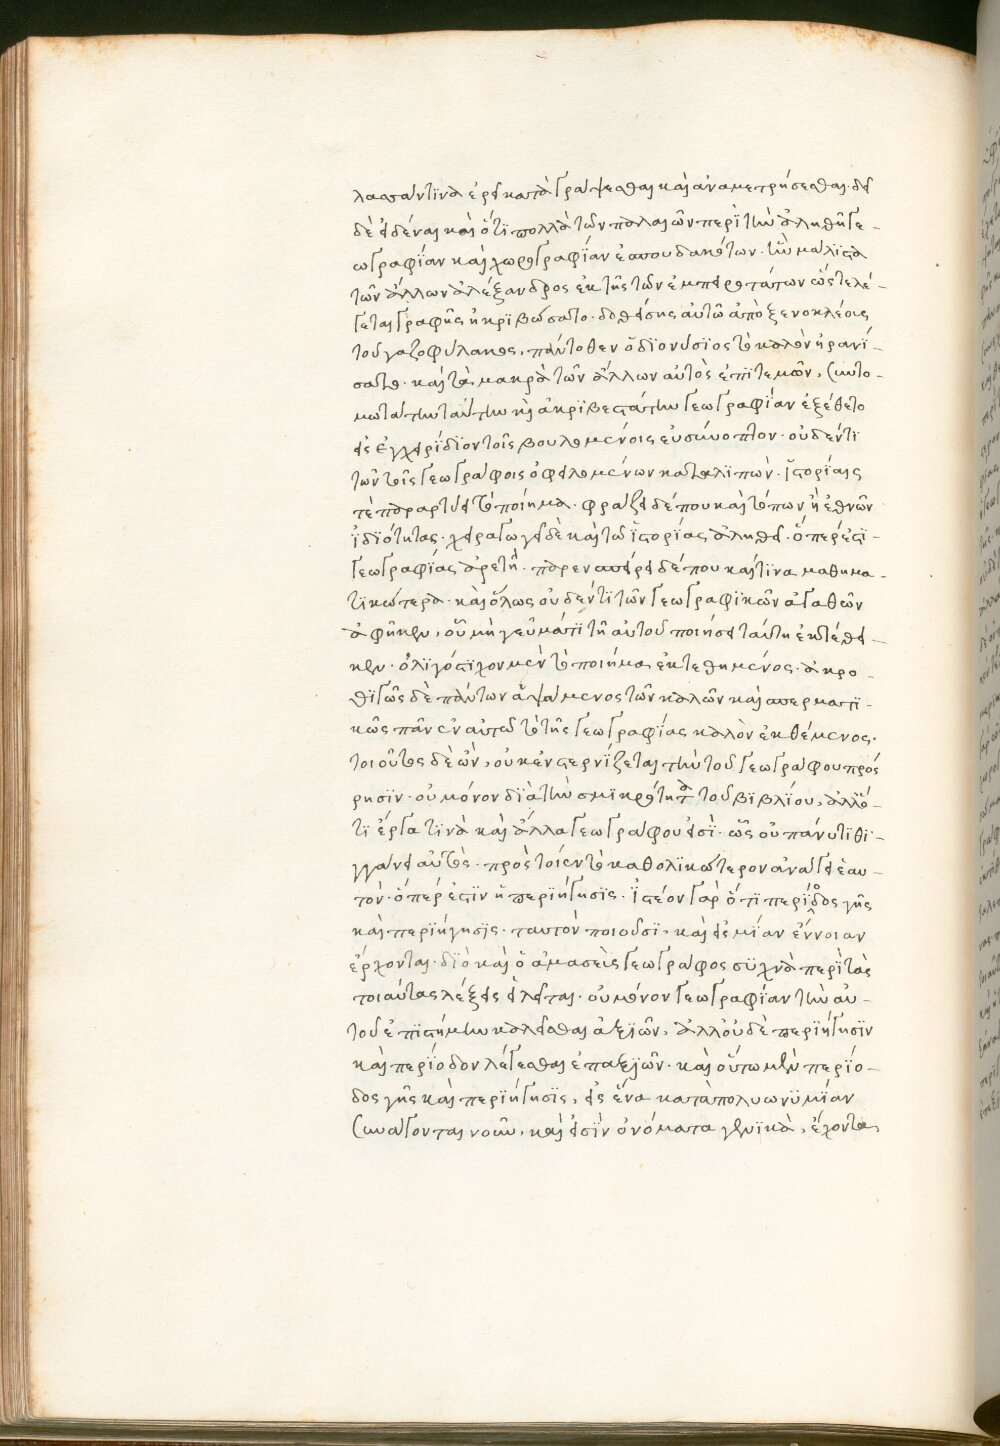 λασσαν τινὰ ἐρεῖ καταγράψεσθαι καὶ ἀναμετρήσεσθαι. δεῖ
δὲ εἰδέναι καὶ ὅτι πολλὰ τῶν παλαιῶν περὶ τὴν ἀληθῆ γε-
ωγραφίαν καὶ χωρογραφίαν ἐσπουδακότων. ἣν μάλιστα
τῶν ἄλλων ἀλέξανδρος ἐκ τῆς τῶν ἐμπειροτάτων ὥς τε λέ-
γεται γραφῆς ἠκριβώσατο. δοθείσης αὐτῶ ἀπὸ ξενοκλέους
τοῦ γαζοφύλακος, πάντοθεν ὁ διονύσιος τὸ καλὸν ἠρανί-
σατο. καὶ τὰ μακρὰ τῶν ἄλλων αὐτὸς ἐπιτεμὼν, συντο-
μωτάτην ταύτην κὴ ἀκριβεστάτην γεωγραφίαν ἐξέθετο
εἰς ἐγχειρίδιον τοῖς βουλομένοις εὐσύνοπτον. οὐδέν τι
τῶν τοῖς γεωγράφοις ὀφειλομένων καταλιπών. ἱστορίαις
τὲ παραρτύει τὸ ποίημα. φράζει δέ που καὶ τόπων ἢ ἐθνῶν
ἰδιότητας. χειραγωγεῖ δὲ καὶ τῶ ἱστορίας ἀληθεῖ. ὅπερ ἐστὶ
γεωγραφίας ἀρετή. παρενσπείρει δέ που καί τινα μαθημα-
τικώτερα. καὶ ὅλως οὐδέν τι τῶν γεωγραφικῶν ἀγαθῶν
ἀφῆκεν, οὗ μὴ γεῦμά τι τῆ αὐτοῦ ποιήσει ταύτη ἐντέθει-
κεν. ὀλιγόστιχον μὲν τὸ ποίημα ἐκτεθημένος. ἀκρο-
θιγῶς δὲ πάντων ἁψάμενος τῶν καλῶν καὶ σπερματι-
κῶς πᾶν ἐν αὐτῶ τὸ τῆς γεωγραφίας καλὸν ἐκθέμενος.
τοιοῦτος δὲ ὢν, οὐκ ἐνστερνίζεται τὴν τοῦ γεωγράφου πρόσ
ρησιν. οὐ μόνον διὰ τὴν σμικρότητα τοῦ βιβλίου, ἀλλ' ὅ-
τι ἔργα τινὰ καὶ ἄλλα γεωγράφου εἰσὶ. ὡς οὐ πάνυ τι θι-
γγάνει αὐτὸς. πρός τοι ἐν τὸ καθολικώτερον ἀνάγει ἑαυ-
τὸν. ὅπερ ἐστὶν ἡ περιήγησις. ἰστέον γὰρ ὅτι περίοδος γῆς
καὶ περιήγησις. ταυτὸν ποιοῦσι, καὶ εἰς μίαν ἔννοιαν
ἔρχονται. διὸ καὶ ὁ ἀμασεὺς γεωγράφος συχνὰ περὶ τὰς
τοιαύτας λέξεις εἱλεῖται. οὐ μόνον γεωγραφίαν τὴν αὐ-
τοῦ ἐπιστήμην καλεῖσθαι ἀξιῶν, ἀλλ' οὐδὲ περιήγησιν
καὶ περίοδον λέγεσθαι ἐπαξιῶν. καὶ οὕτω μὲν περίο-
δος γῆς καὶ περιήγησις, εἰς ἕνα κατὰ πολυωνυμίαν
συνάγονται νοῦν, καὶ εἰσὶν ὀνόματα γενικὰ, ἔχοντα